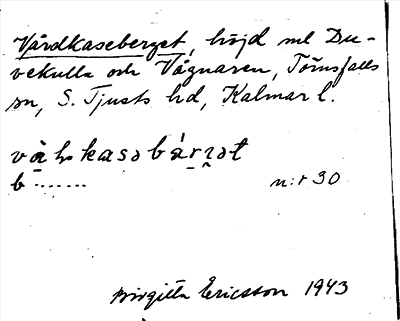 Vårdkaseberget, höjd ml Du-
vekulla och Vågnaren, Törnsfalls
sn, S. Tjusts hd, Kalmar l.
b.......
n:r 30
Birgitta Ericsson 1943